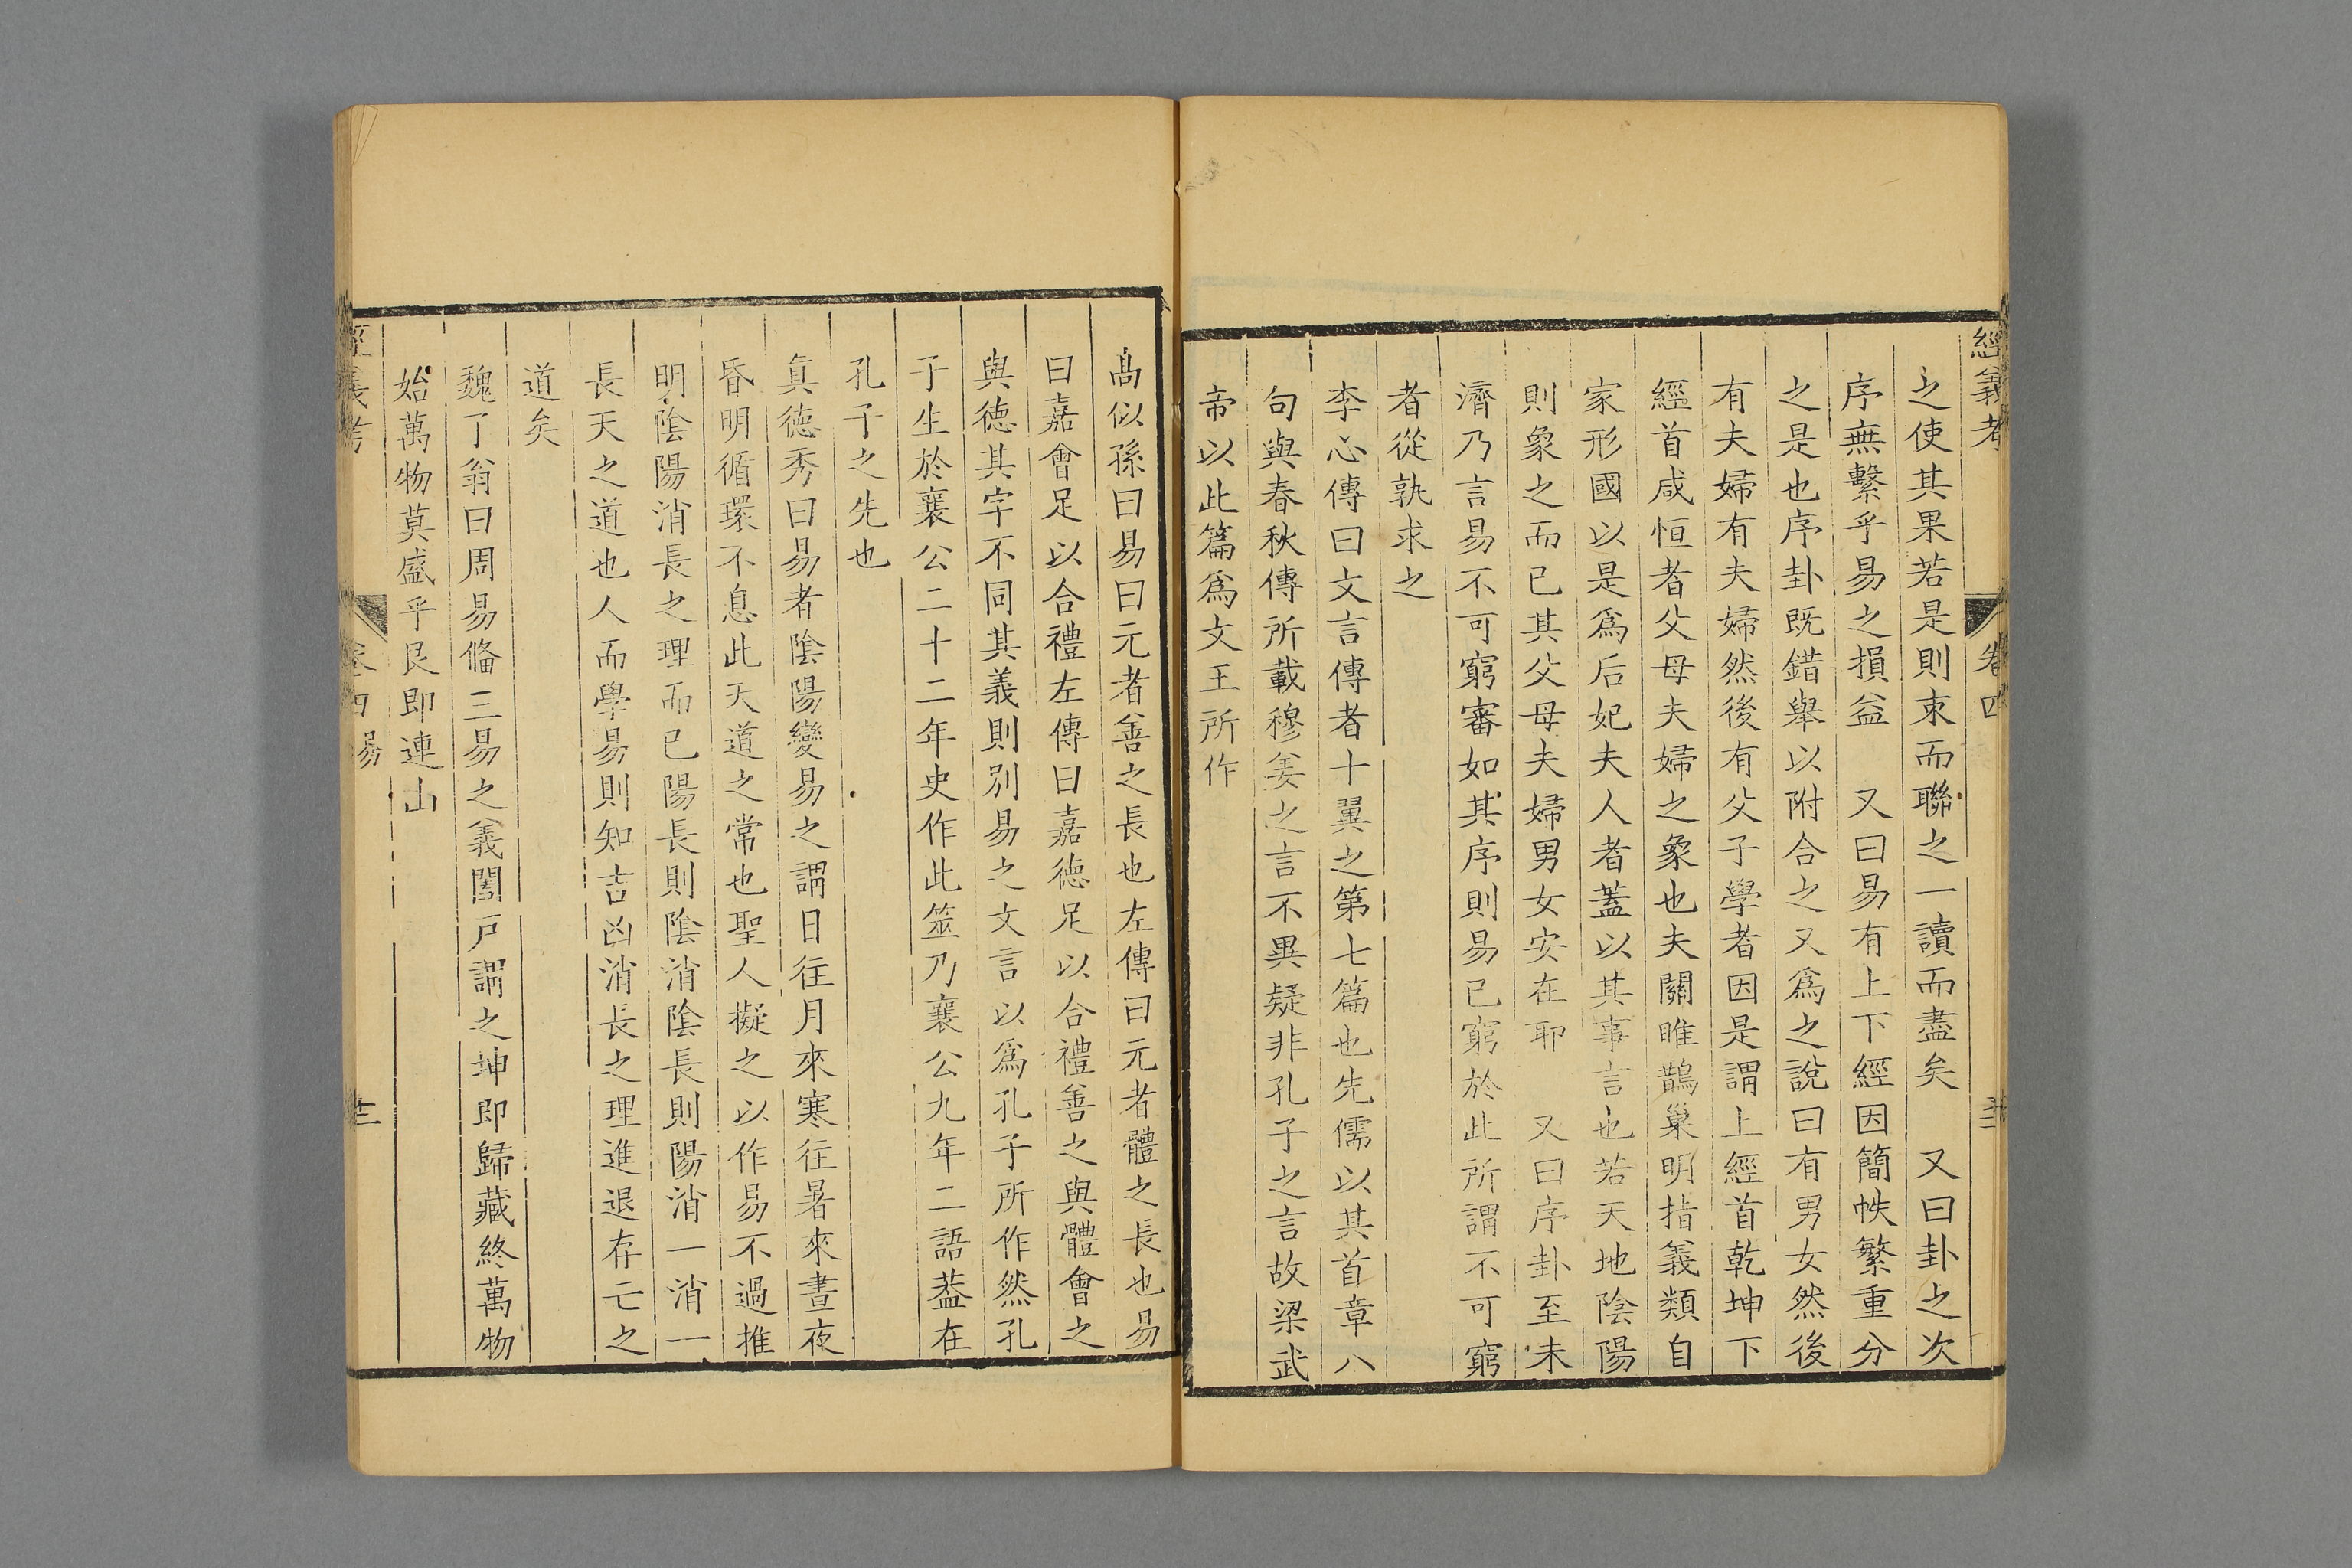 經義考 卷四
之使其果若是則束而聯之一讀而盡矣 又曰卦之次
序無繫乎易之損益 又曰易有上下經因簡帙繁重分
之是也序卦既錯舉以附合之又爲之說曰有男女然後
有夫婦有夫婦然後有父子學者因是謂上經首乾坤下
經首咸恒者父母夫婦之象也夫關雎鵲巢明指義類自
家形國以是爲后妃夫人者蓋以其事言也若天地陰陽
則象之而已其父母夫婦男女安在耶 又曰序卦至未
濟乃言易不可窮審如其序則易已窮於此所謂不可窮
者從孰求之
李心傳曰文言傳者十翼之第七篇也先儒以其首章八
句與春秋傳所載穆姜之言不異疑非孔子之言故梁武
帝以此篇爲文王所作
高似孫曰易曰元者善之長也左傳曰元者體之長也易
曰嘉會足以合禮左傳曰嘉德足以合禮善之與體會之
與德其字不同其義則別易之文言以爲孔子所作然孔
子生於襄公二十二年史作此筮乃襄公九年二語葢在
孔子之先也
真德秀曰易者陰陽變易之謂日往月來寒往暑來晝夜
昏明循環不息此天道之常也聖人擬之以作易不過推
明陰陽消長之理而已陽長則陰消陰長則陽消一消一
長天之道也人而學易則知吉凶消長之理進退存亡之
道矣
魏了翁曰周易備三易之義闔戶謂之坤即歸藏終萬物
始萬物莫盛乎艮即連山
經義考 卷四 易